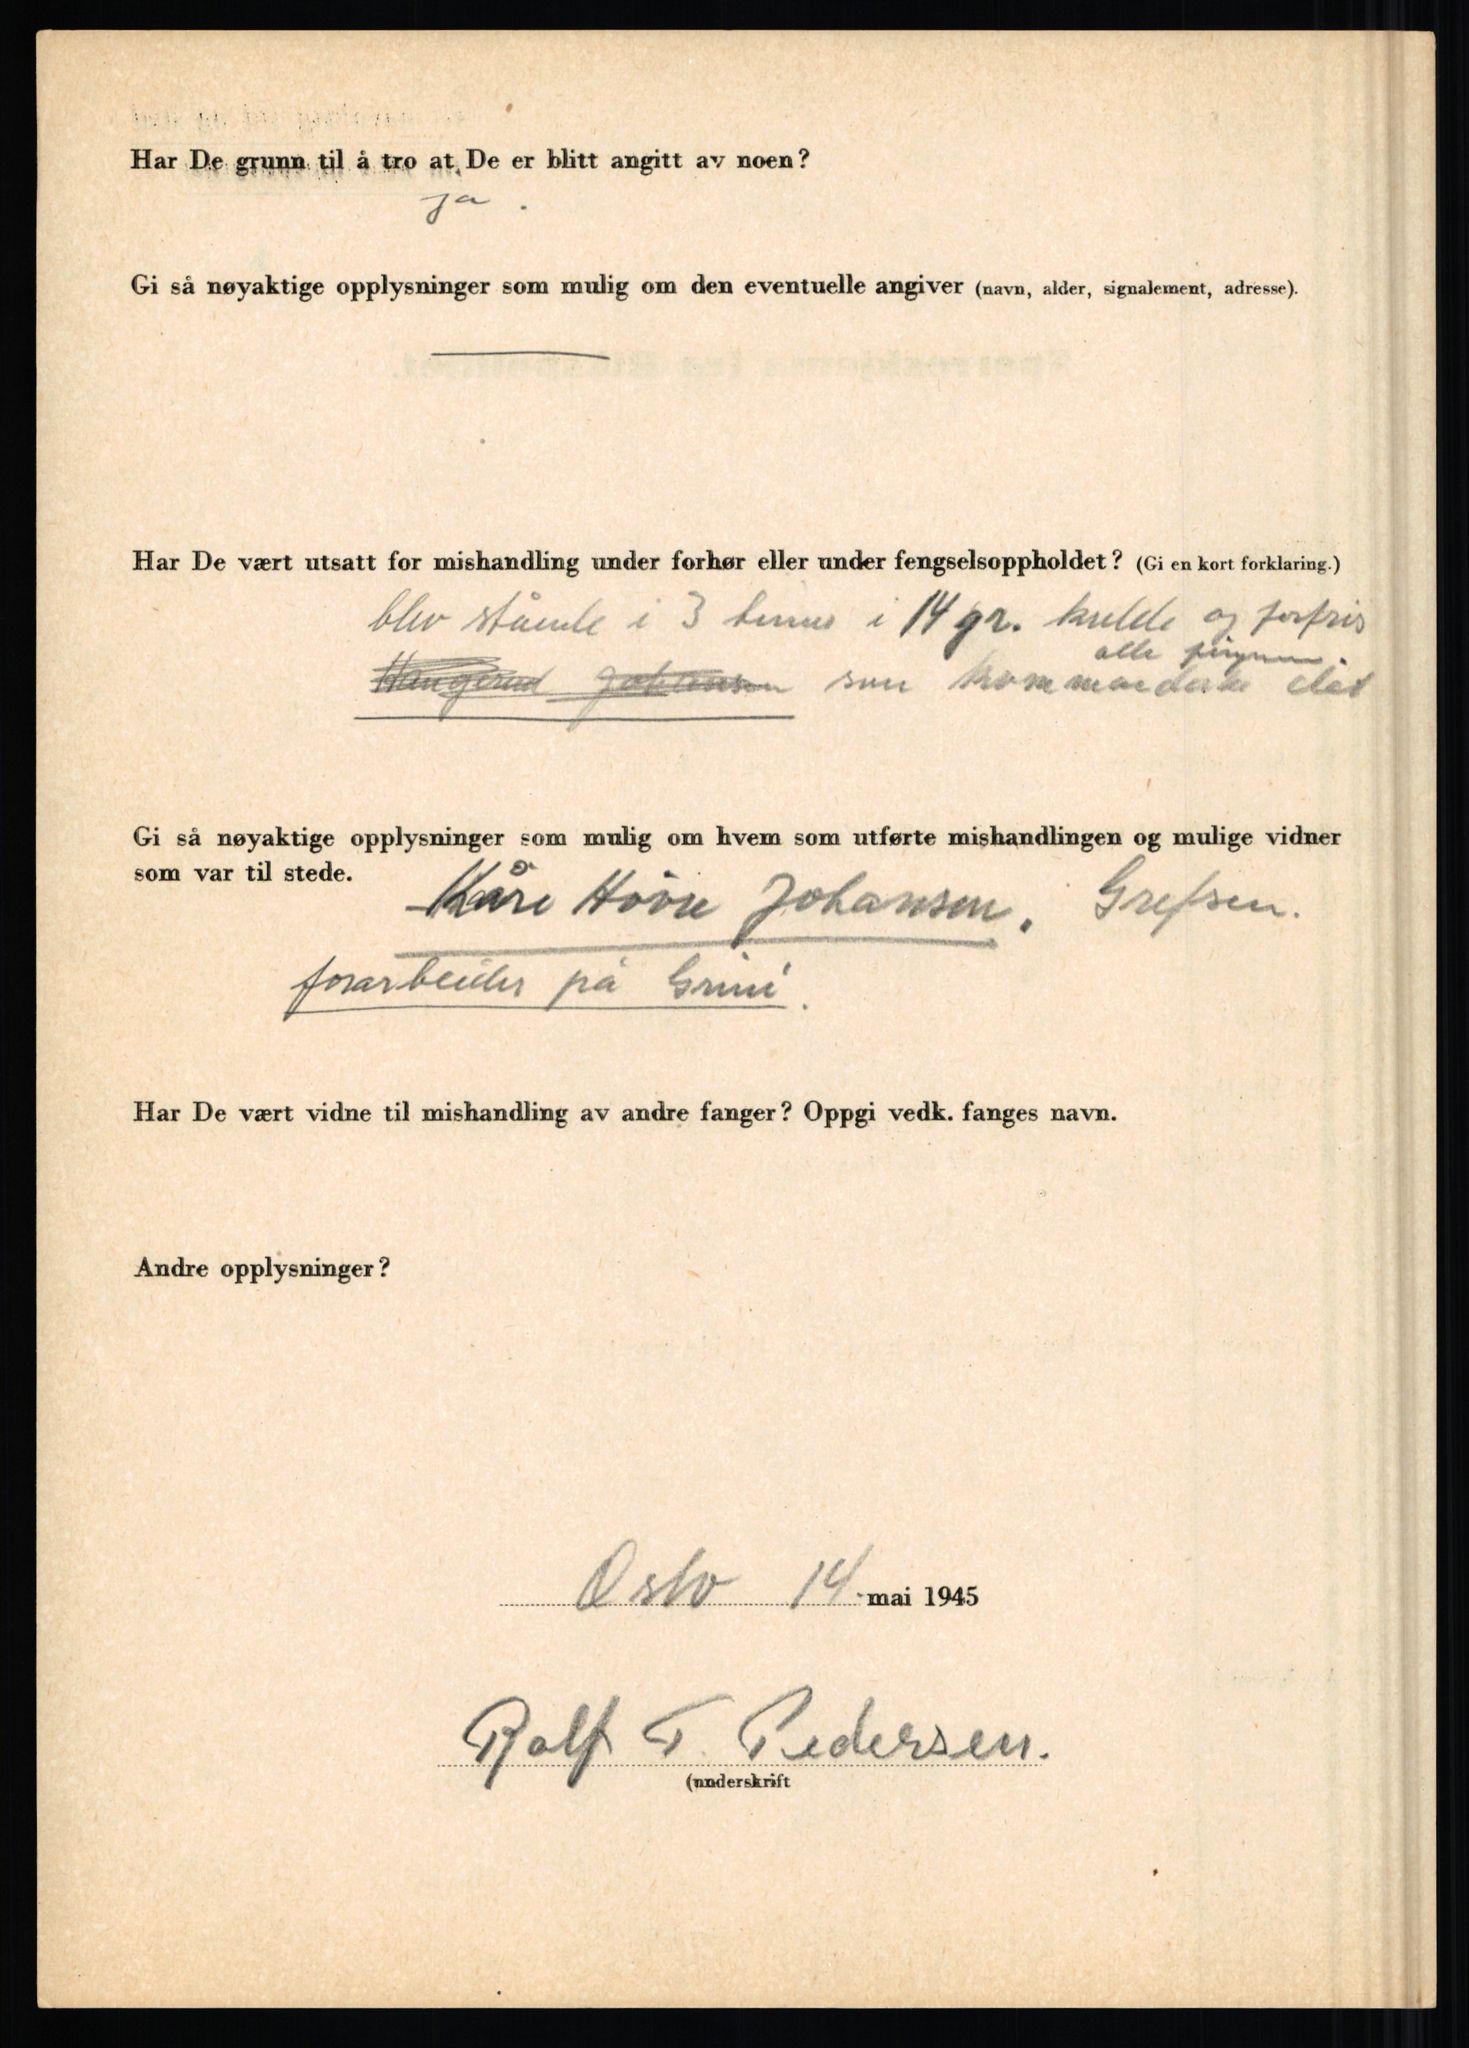 Har De grunn til å tro at De er blitt angitt av noen?
ja.
Gi så nøyaktige opplysninger som mulig om den eventuelle angiver (navn, alder, signalement, adresse).
Har De vært utsatt for mishandling under forhør eller under fengselsoppholdet? (Gi en kort forklaring.)
blev stående i 3 timer i 14 gr. kulde og forfris
alle fingrene.
Haugerud Johansen som kommanderte det
Gi så nøyaktige opplysninger som mulig om hvem som utførte mishandlingen og mulige vidner
som var til stede.
Kåre Hovre Johansen. Grefsen.
forarbeider på Grini.
Har De vært vidne til mishandling av andre fanger? Oppgi vedk. fanges navn.
Andre opplysninger?
Oslo 14 mai 1945
Rolf T. Pedersen.
(underskrift